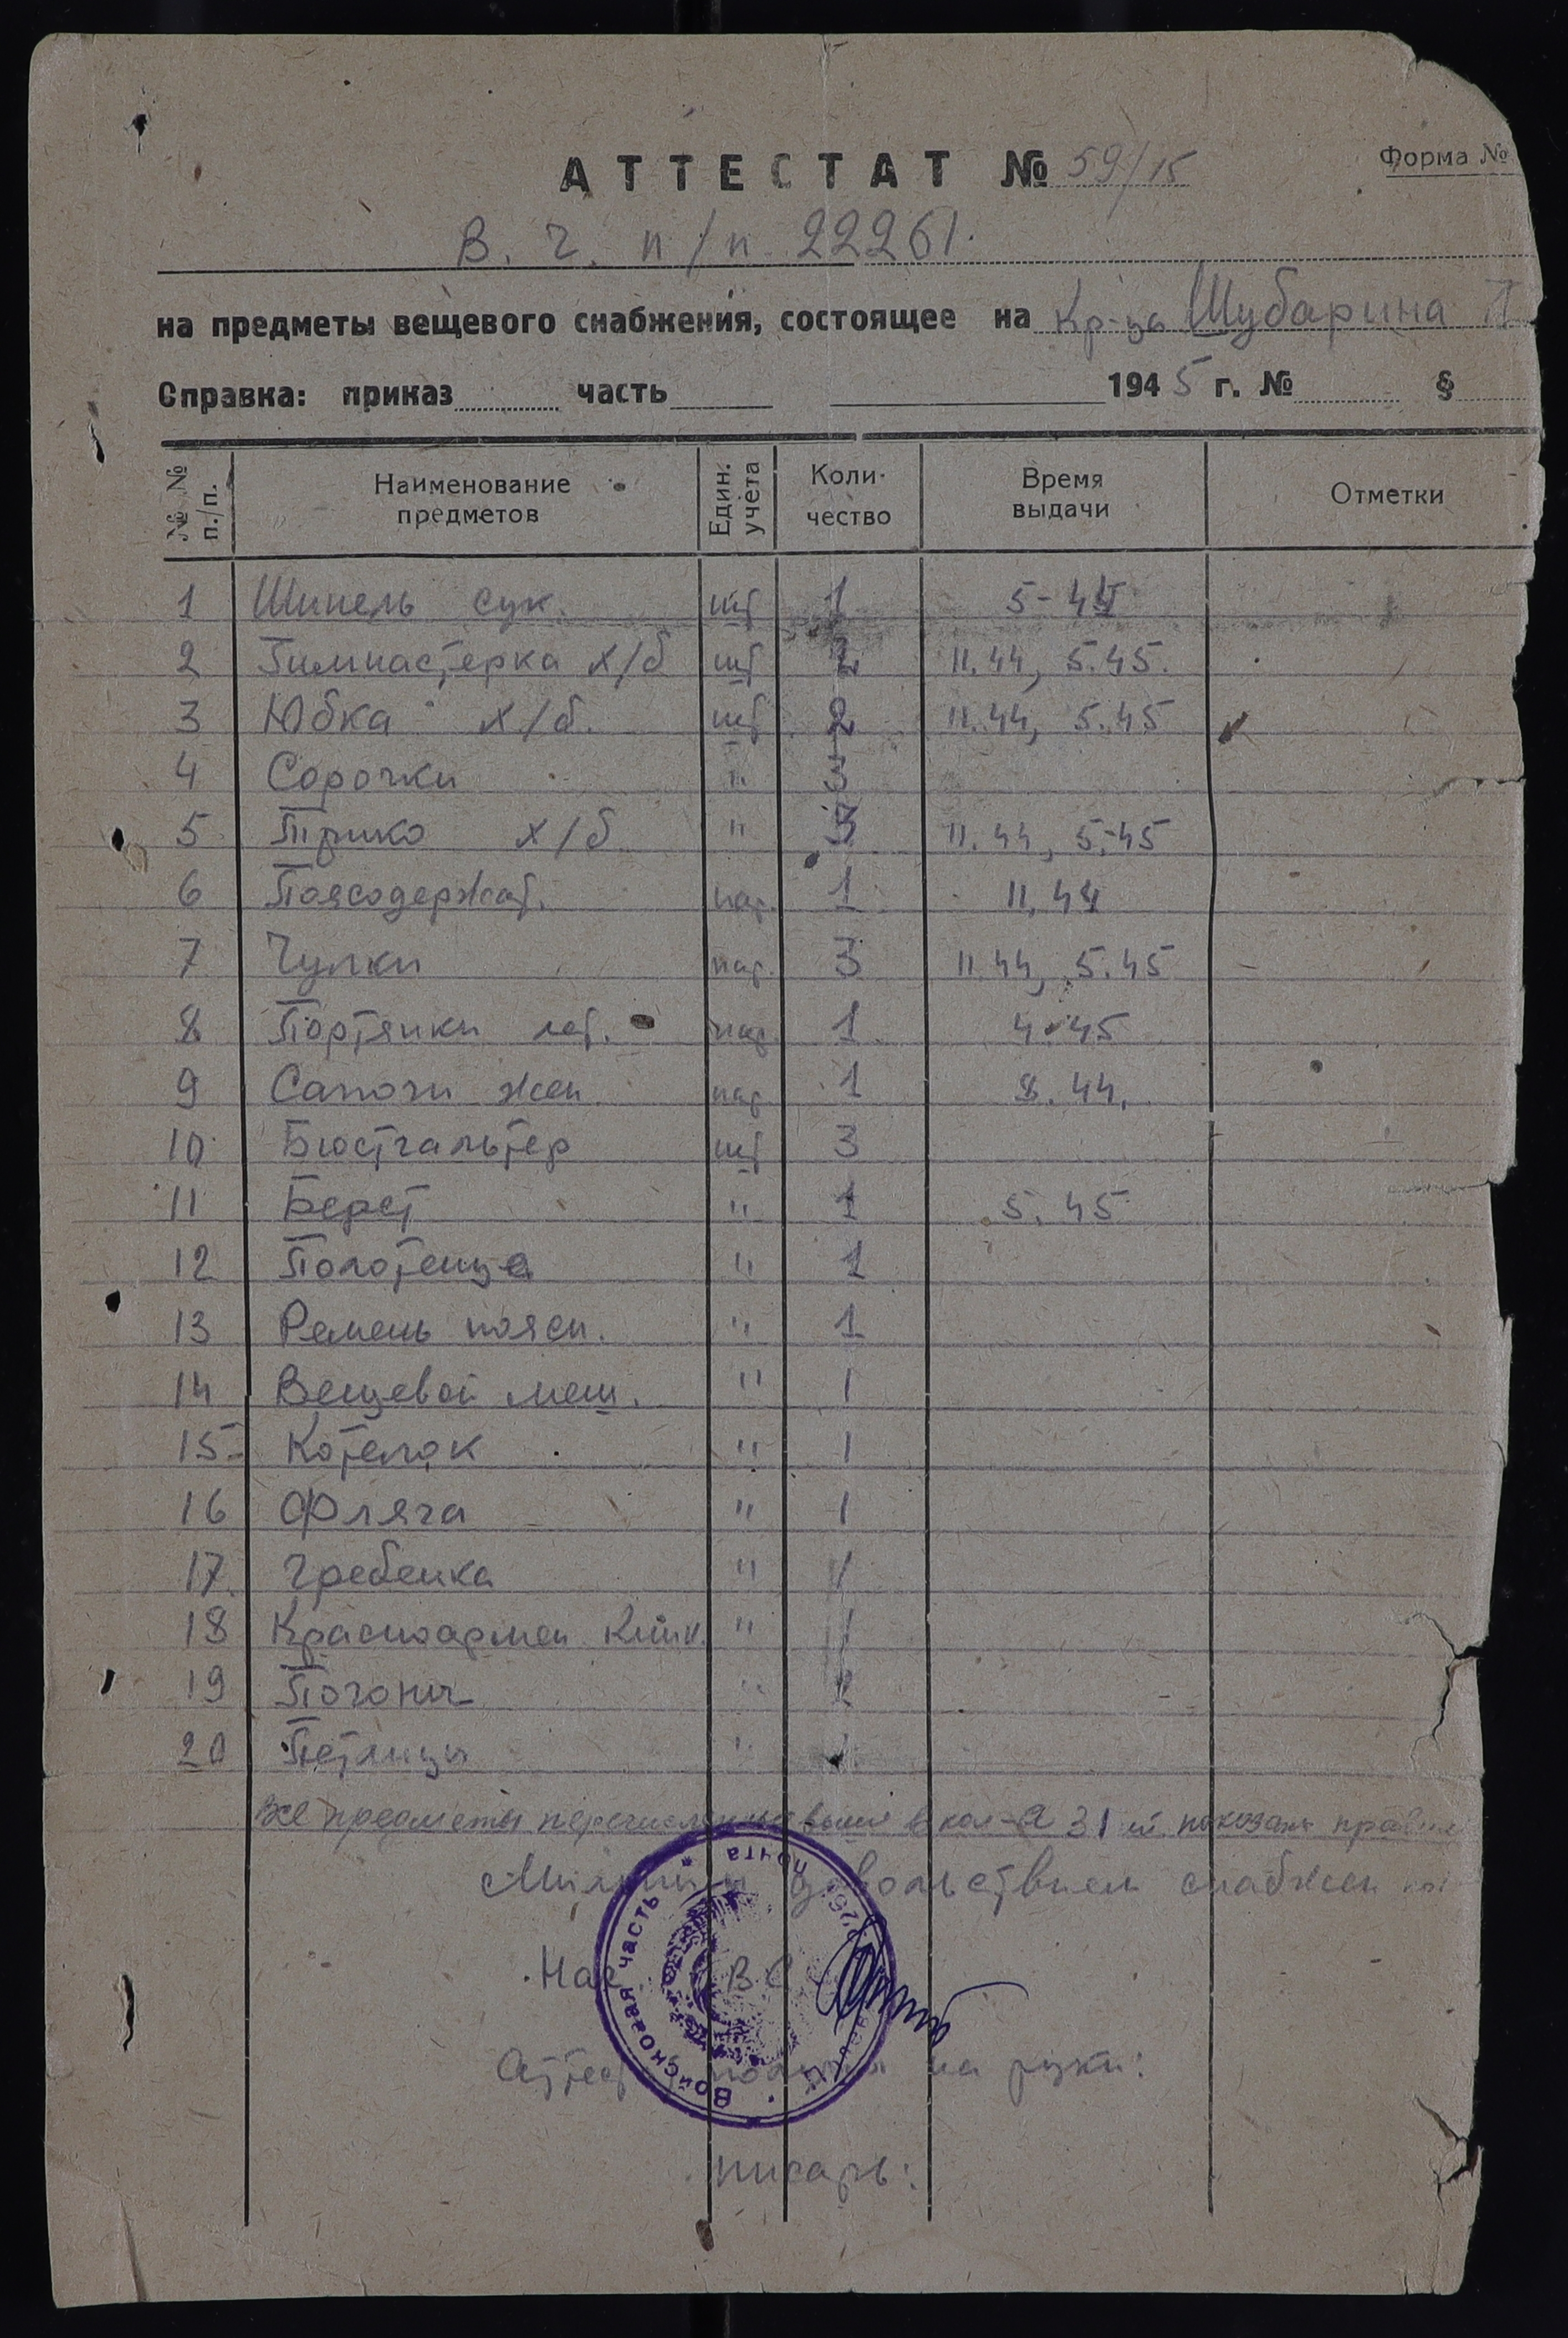 АТТЕСТАТ № 59/15
Форма №
В. Ч. п/п 22261.
на предметы вещевого снабжения, состоящее на Кр-ца Шубарина
Справка: приказ часть 1945 г. № §
№ № п./п. Наименование предметов Един. учёта Коли- чество Время выдачи Отметки
1 Шинель сук. шт 1 5-45
2 Гимнастерка х/б шт 2 11.44, 5.45.
3 Юбка х/б. шт 2 11.44, 5.45
4 Сорочки " 3
5 Трико х/б " 3 11.44, 5.45
6 Поясодержат. пар. 1 11.44
7 Чулки пар. 3 11.44, 5.45
8 Портянки лет. пар 1 4.45
9 Сапоги жен. пар 1 8.44.
10 Бюстгальтер шт 3
11 Берет " 1 5.45
12 Полотенце " 1
13 Ремень поясн. " 1
14 Вещевой меш. " 1
15 Котелок " 1
16 Фляга " 1
17. Гребенка " 1
18 Красноармей книж. " 1
19 Погоны " 2
20 Петлицы "
Все предметы перечисленные выше в кол-ве 31 показаны
Мылом довольствием снабжен
Нач. ВС
Войсковая часть * почта
Аттестат получил на руки:
писарь: